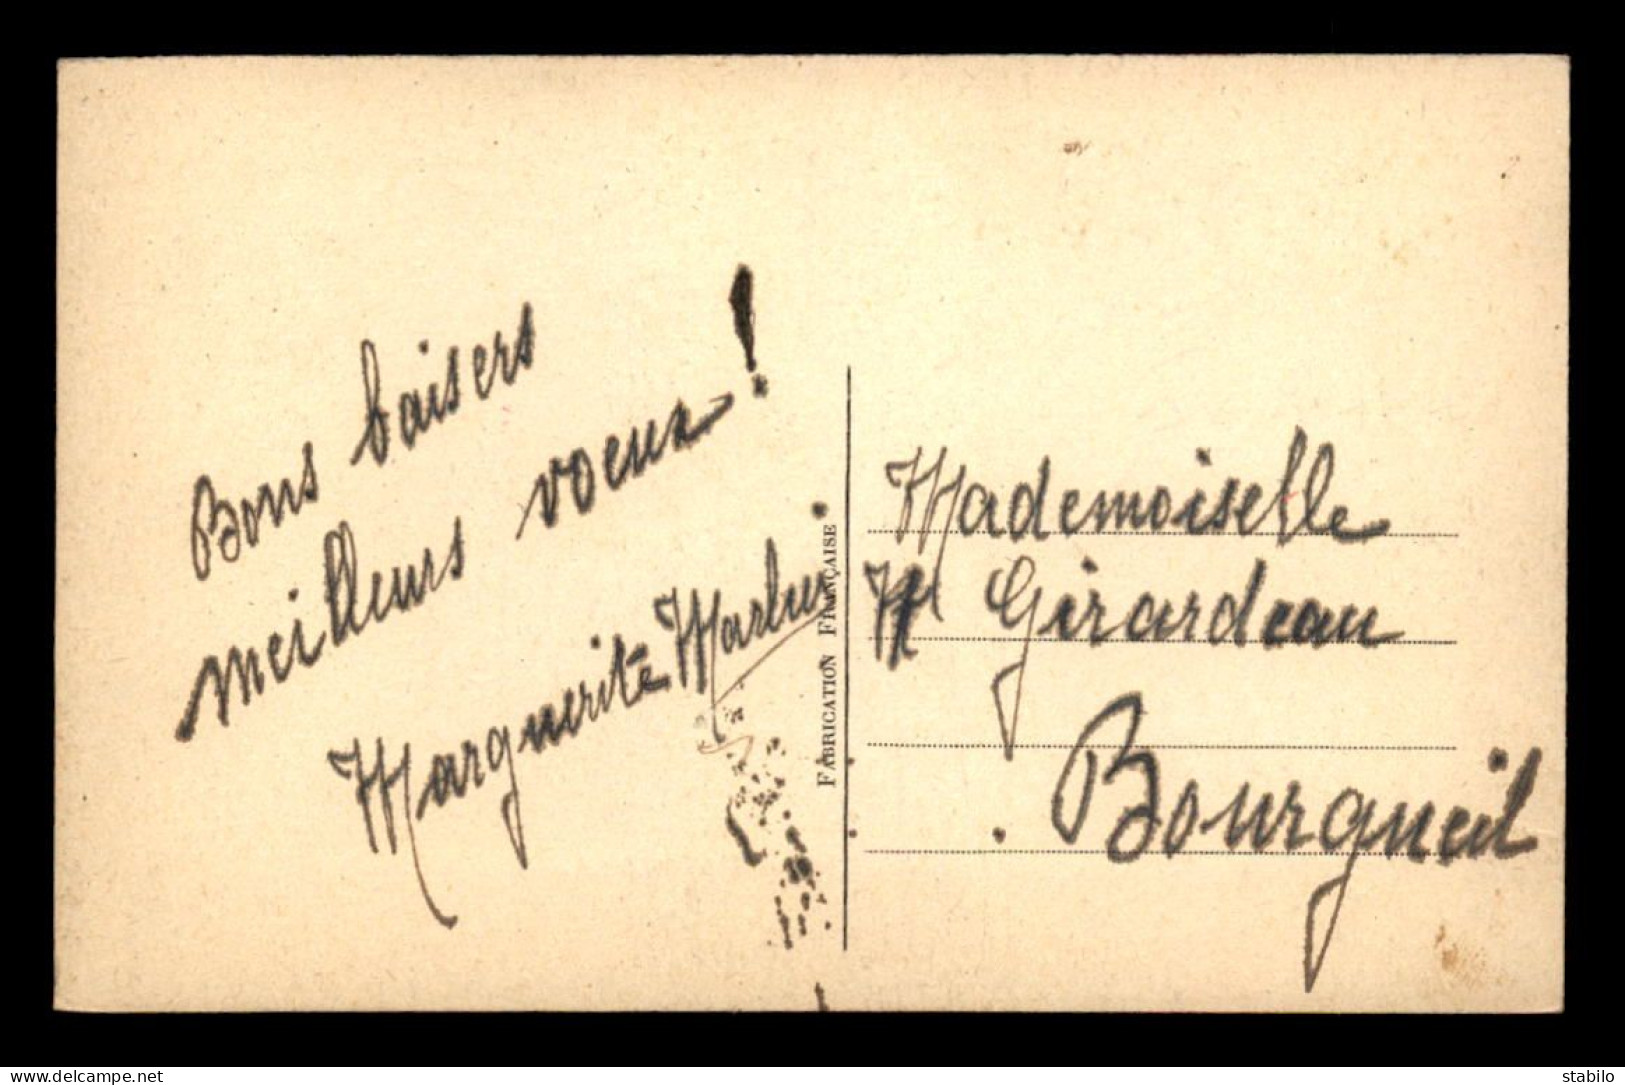 Bons baisers
meilleurs voeux !
Marguerite
FABRICATION FRANÇAISE
Mademoiselle
M Girardeau
Bourgueil
www.delcampe.net
stabilo